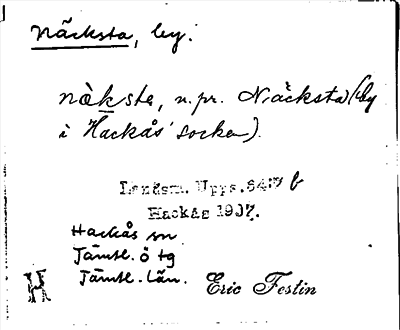 Näcksta, by.
näkste, n. pr. Näcksta (by
i Hackås socken).
Landsm. Upps. b
Hackås 1907.
Hackås sn
Jämtl. ö tg
Jämtl. län.
H Eric Festin